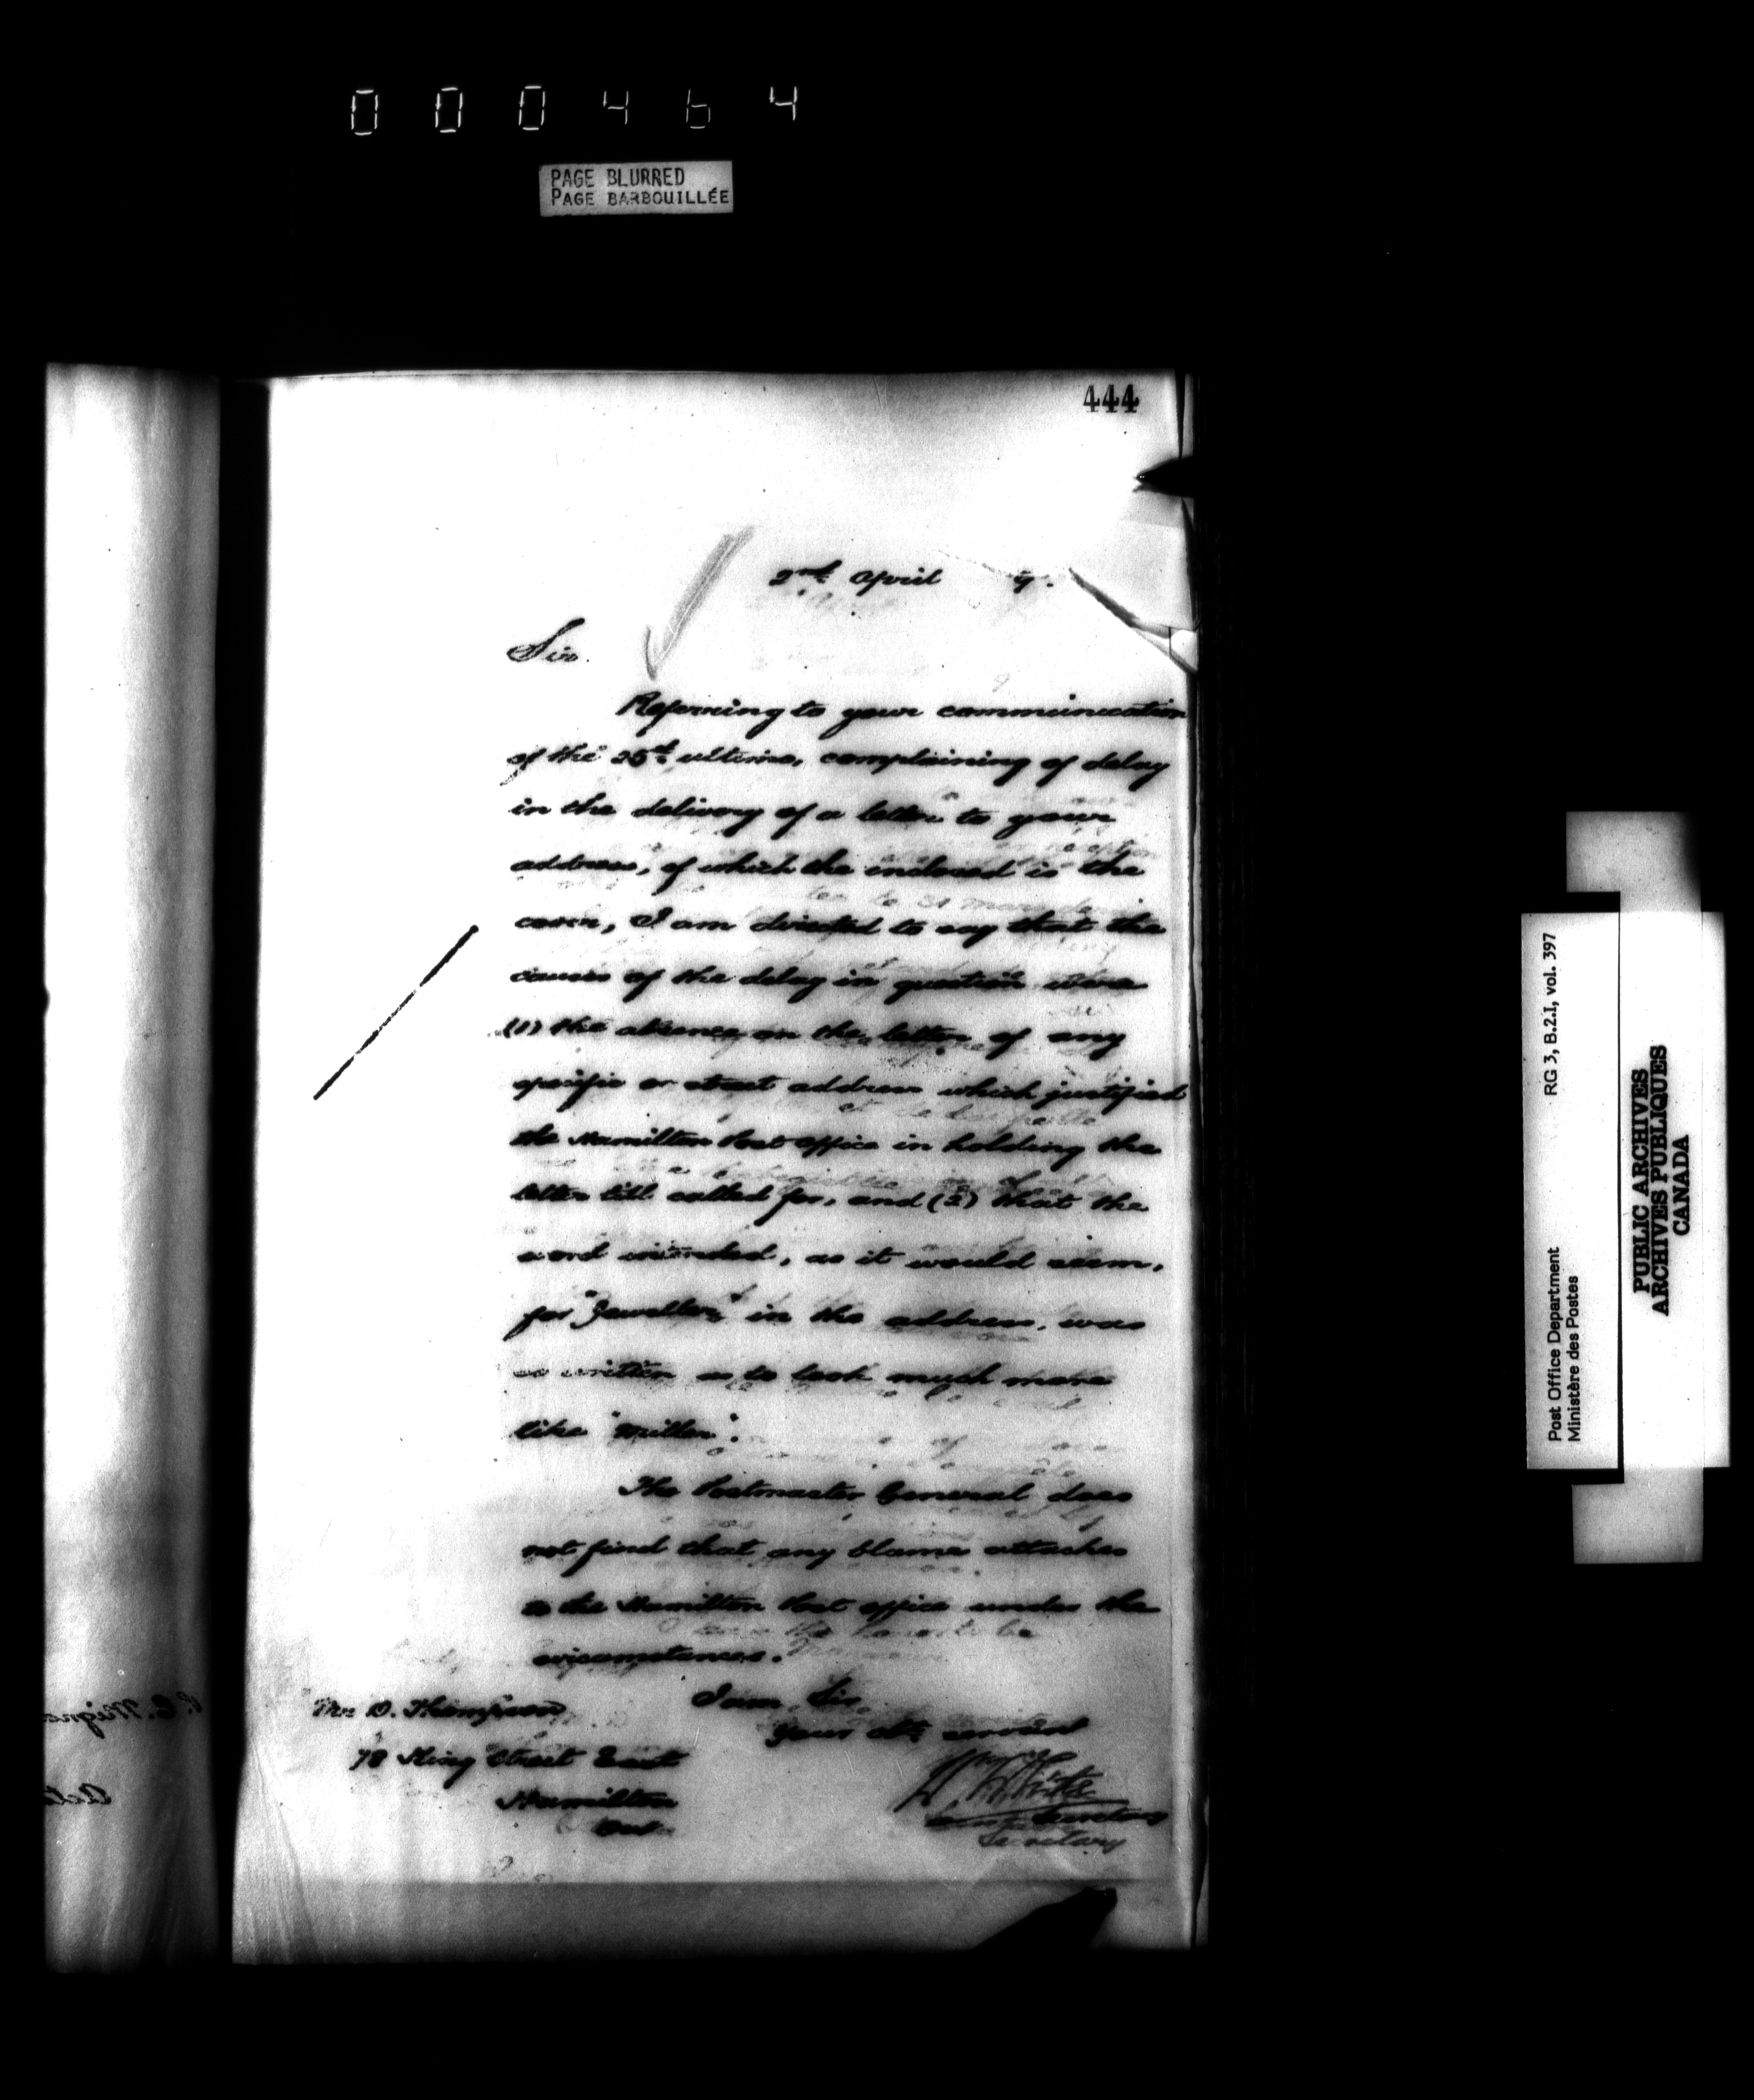 000464
PAGE BLURRED
PAGE BARBOUILLÉE
444
2nd April 9.
Sir.
Referring to your communication
of the 25th ultimo, complaining of delay
in the delivery of a letter to your
address, of which the inclosed is the
cover, I am directed to say that the
causes of the delay in question were
(1) the absence on the letter of any
specific or street address which justified
the Hamilton Post Office in holding the
letter till called for, and (2) that the
word intended, as it would seem,
for "Jeweller" in the address, was
so written as to look much more
like "Miller".
The Postmaster General does
not find that any blame attaches
to the Hamilton Post Office under the
circumstances.
I am, Sir,
Your obt. servant
Wm White
Secretary
Secretary
Mr. D. Thompson
78 King Street East
Hamilton
Ont.
RG 3, B.2.I, vol. 397
Post Office Department
Ministère des Postes
PUBLIC ARCHIVES
ARCHIVES PUBLIQUES
CANADA